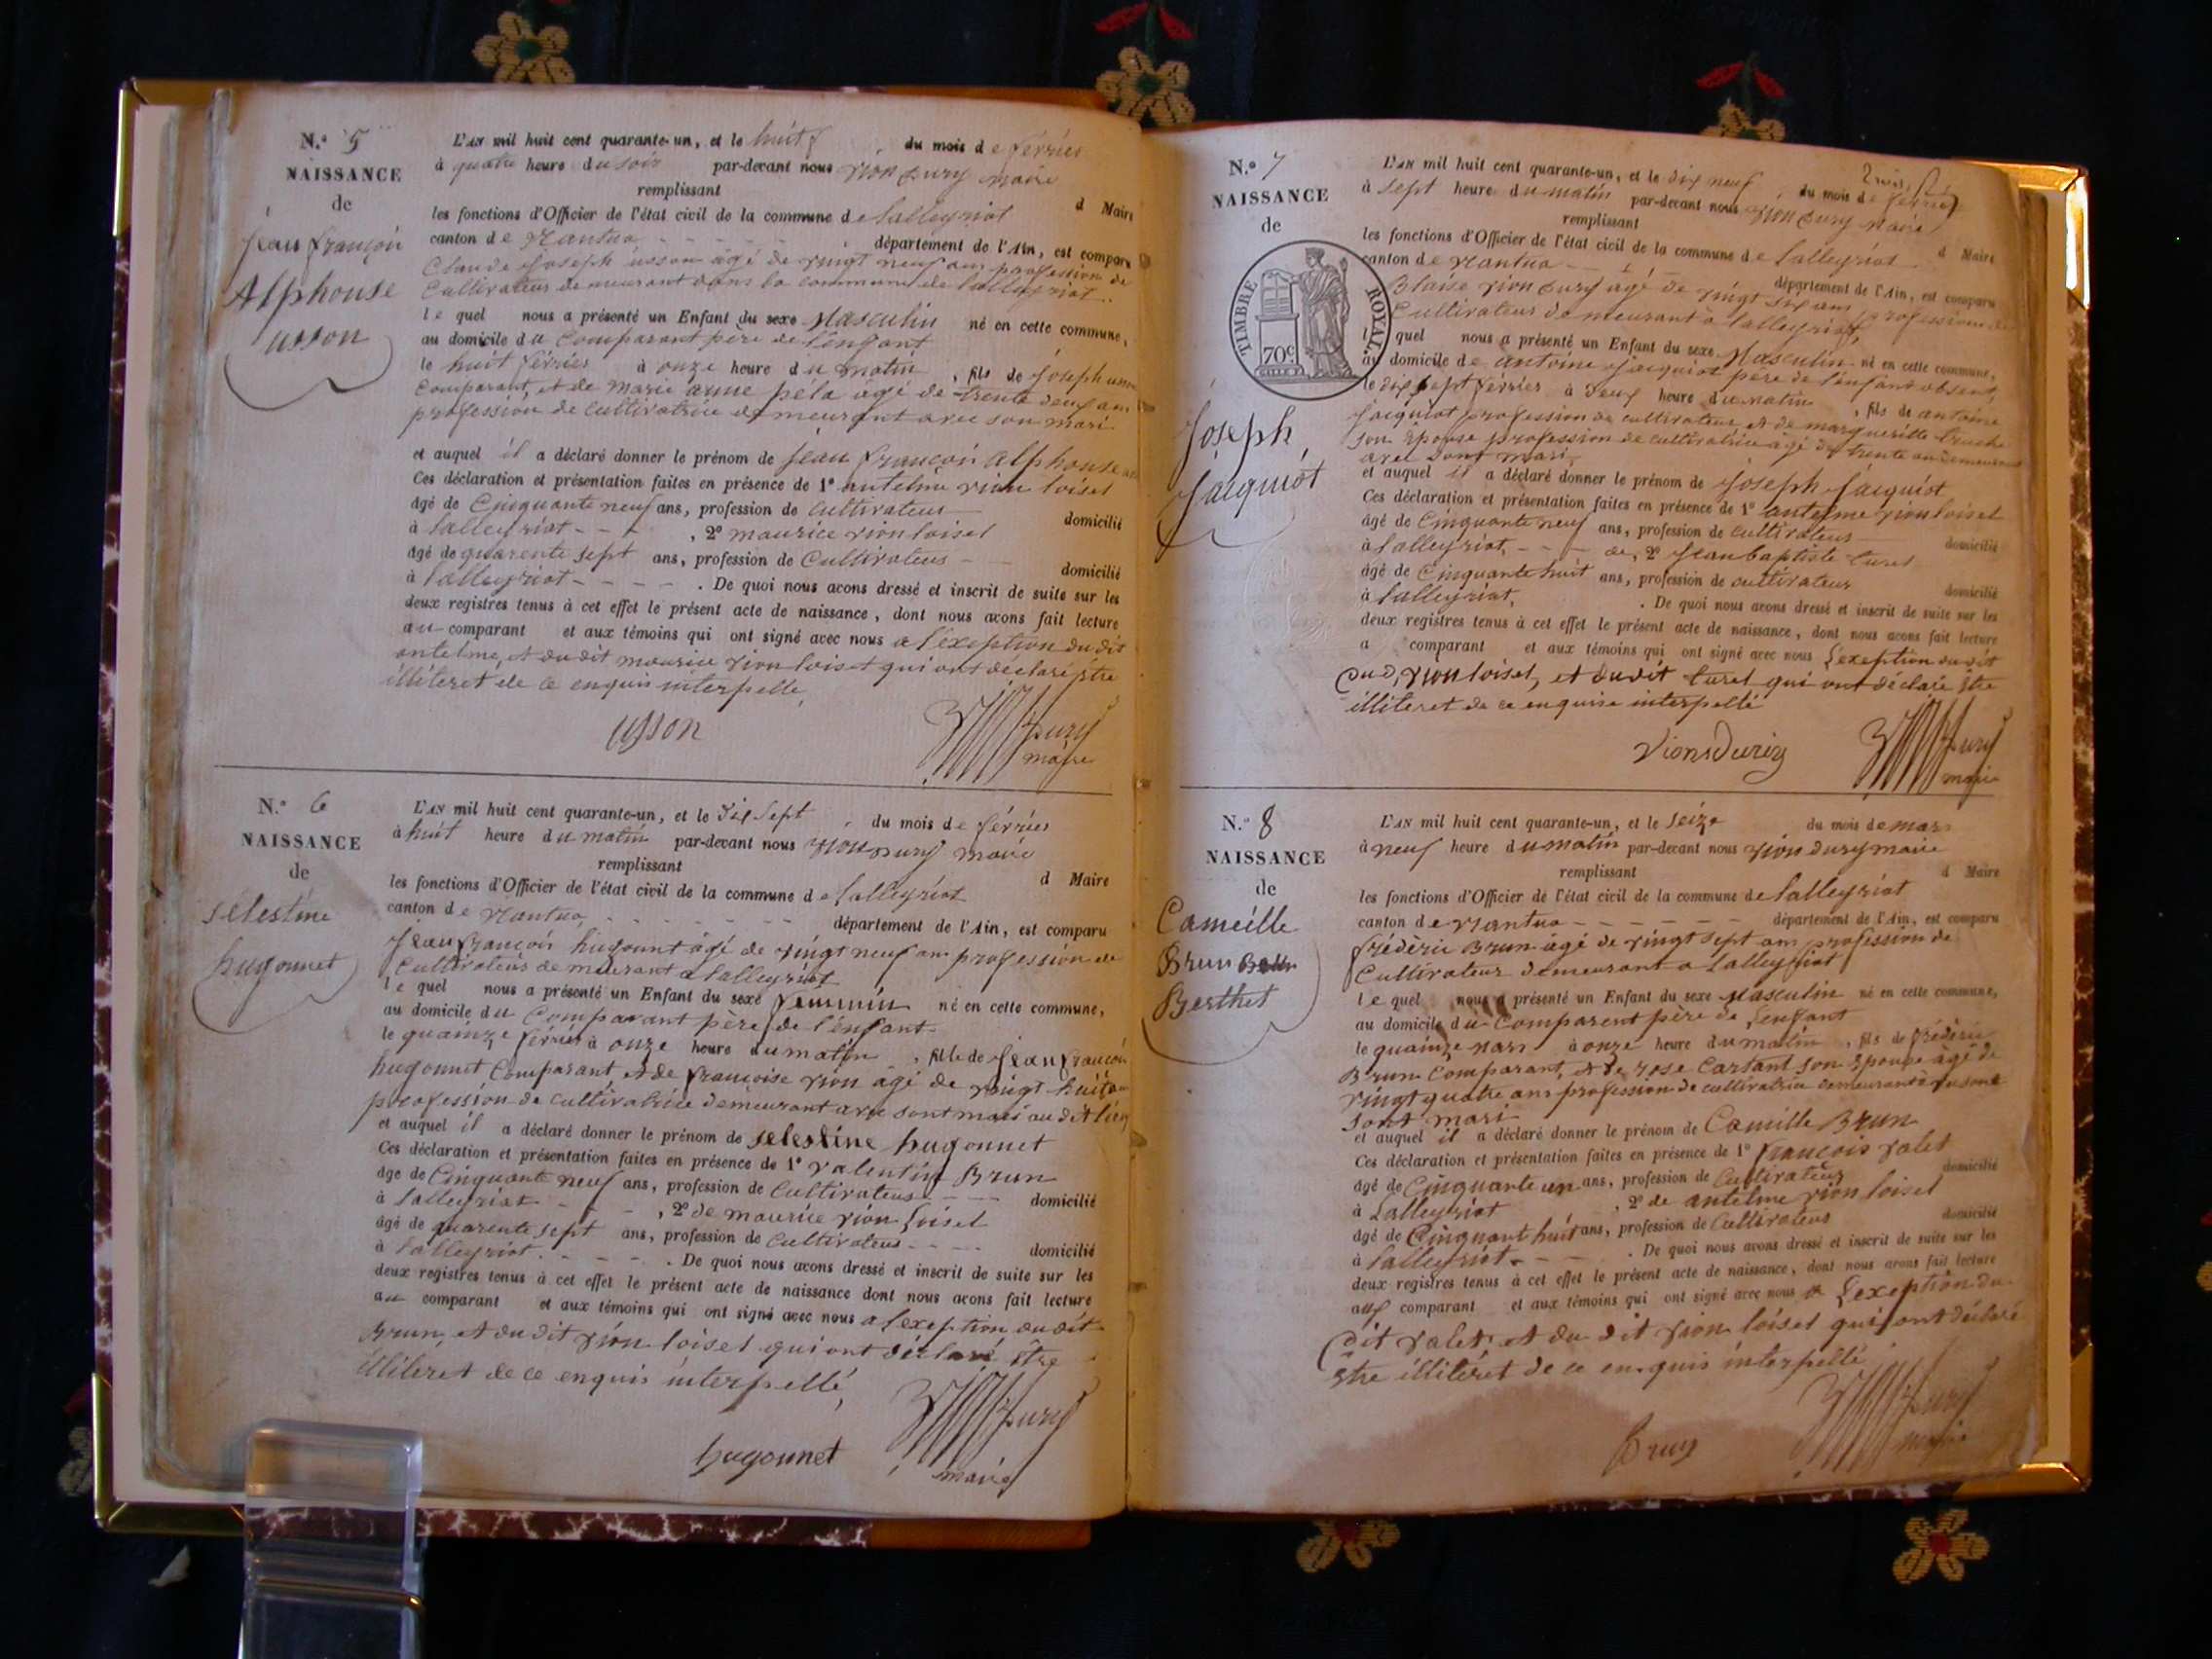 N.° 5
NAISSANCE
de
jean françois
Alphonse
usson
L'AN mil huit cent quarante-un, et le huit du mois de février
à quatre heure du soir par-devant nous vion dury maire
remplissant
les fonctions d'Officier de l'état civil de la commune de lalleyriat d Maire
canton de Nantua - - - - - département de l'Ain, est comparu
Claude joseph usson âgé de vingt neuf ans profession de
Cultivateur demeurant dans la commune de lalleyriat.
le quel nous a présenté un Enfant du sexe Masculin né en cette commune,
au domicile du Comparant père de l'enfant
le huit février à onze heure du matin , fils de joseph usson
Comparant, et de marie anne pela âgé de trente deux ans
profession de cultivatrice demeurant avec son mari
et auquel il a déclaré donner le prénom de jean françois alphonse
Ces déclaration et présentation faites en présence de 1° antelme vion loiset
âgé de Cinquante neuf ans, profession de Cultivateur domicilié
à lalleyriat - - - , 2° maurice vion loiset
âgé de quarente sept ans, profession de Cultivateur - - domicilié
à lalleyriat - - - - . De quoi nous avons dressé et inscrit de suite sur les
deux registres tenus à cet effet le présent acte de naissance, dont nous avons fait lecture
au comparant et aux témoins qui ont signé avec nous a l'exeption du dit
antelme, et du dit maurice vion loiset qui ont déclaré être
illiteret de ce enquis interpelle,
usson
dury
maire
N.° 6
NAISSANCE
de
sélestine
hugonnet
L'AN mil huit cent quarante-un, et le dix sept du mois de février
à huit heure du matin par-devant nous vion dury maire
remplissant
les fonctions d'Officier de l'état civil de la commune de lalleyriat d Maire
canton de Nantua - - - - - - département de l'Ain, est comparu
jean françois hugonnet âgé de vingt neuf ans profession de
Cultivateur demeurant a lalleyriat
le quel nous a présenté un Enfant du sexe feminin né en cette commune,
au domicile du Comparant père de l'enfant
le quainze février à onze heure du matin , fille de jean françois
hugonnet Comparant, et de françoise vion âgé de vingt huit ans
profession de cultivatrice demeurant avec sont mari au dit lieu
et auquel il a déclaré donner le prénom de selestine hugonnet
Ces déclaration et présentation faites en présence de 1° valentin Brun
âge de Cinquante neuf ans, profession de Cultivateur - - - domicilié
à lalleyriat - - - , 2° de maurice vion loiset
âgé de quarente sept ans, profession de Cultivateur - - - domicilié
à lalleyriat. - - - - . De quoi nous avons dressé et inscrit de suite sur les
deux registres tenus à cet effet le présent acte de naissance dont nous avons fait lecture
au comparant et aux témoins qui ont signé avec nous a l'exeption du dit
Brun, et du dit vion loiset qui ont déclaré être
illiteret de ce enquis interpellé,
hugonnet
dury
maire
N.° 7
NAISSANCE
de
TIMBRE ROYAL
70c
joseph
jacquiot
L'AN mil huit cent quarante-un, et le dix neuf du mois de février
à sept heure du matin par-devant nous vion dury maire
remplissant
les fonctions d'Officier de l'état civil de la commune de lalleyriat d Maire
canton de Nantua - - département de l'Ain, est comparu
Blaise vion dury âgé de vingt six ans profession de
Cultivateur demeurant à lalleyriat
quel nous a présenté un Enfant du sexe Masculin né en cette commune,
au domicile de antoine jacquiot père de l'enfant absent,
le dix sept février à deux heure du matin , fils de antoine
jacquiot profession de cultivateur et de margueritte
son Epouse profession de cultivatrice âgé de trente an demeurant
avec sont mari,
et auquel il a déclaré donner le prénom de joseph jacquiot
Ces déclaration et présentation faites en présence de 1° antelme vion loiset
âgé de Cinquante neuf ans, profession de cultivateur domicilié
à lalleyriat, - - - de, 2° jean baptiste turet
âgé de Cinquante huit ans, profession de cultivateur domicilié
à lalleyriat, . De quoi nous avons dressé et inscrit de suite sur les
deux registres tenus à cet effet le présent acte de naissance, dont nous avons fait lecture
a comparant et aux témoins qui ont signé avec nous l'exeption du dit
vion loiset, et du dit turet qui ont déclaré être
illiteret de ce enquise interpellé
Vion Dury
dury
maire
N.° 8
NAISSANCE
de
Cameille
Brun
Berthet
L'AN mil huit cent quarante-un, et le seize du mois de mars
à neuf heure du matin par-devant nous vion dury maire
remplissant
les fonctions d'Officier de l'état civil de la commune de lalleyriat d Maire
canton de Nantua - - - - - - département de l'Ain, est comparu
frédéric Brun âgé de vingt sept ans profession de
Cultivateur demeurant a lalleyriat
le quel nous a présenté un Enfant du sexe Masculin né en cette commune,
au domicile du Comparent père de l'enfant
le quainze mars à onze heure du matin , fils de frédéric
Brun Comparant, et de rose Cartant son Epouse âgé de
vingt quatre ans profession de cultivatrice demeurant
sont mari
et auquel il a déclaré donner le prénom de Camille Brun
Ces déclaration et présentation faites en présence de 1° françois valet
âgé de Cinquante un ans, profession de Cultivateur domicilié
à Lalleyriat , 2° de antelme vion loiset
âgé de Cinquant huit ans, profession de Cultivateur domicilié
à lalleyriat - - - . De quoi nous avons dressé et inscrit de suite sur les
deux registres tenus à cet effet le présent acte de naissance, dont nous avons fait lecture
aux comparant et aux témoins qui ont signé avec nous a l'exeption du
dit valet, et du dit vion loiset qui ont déclaré
etre illiterét de ce enquis interpellé
Brun
dury
maire